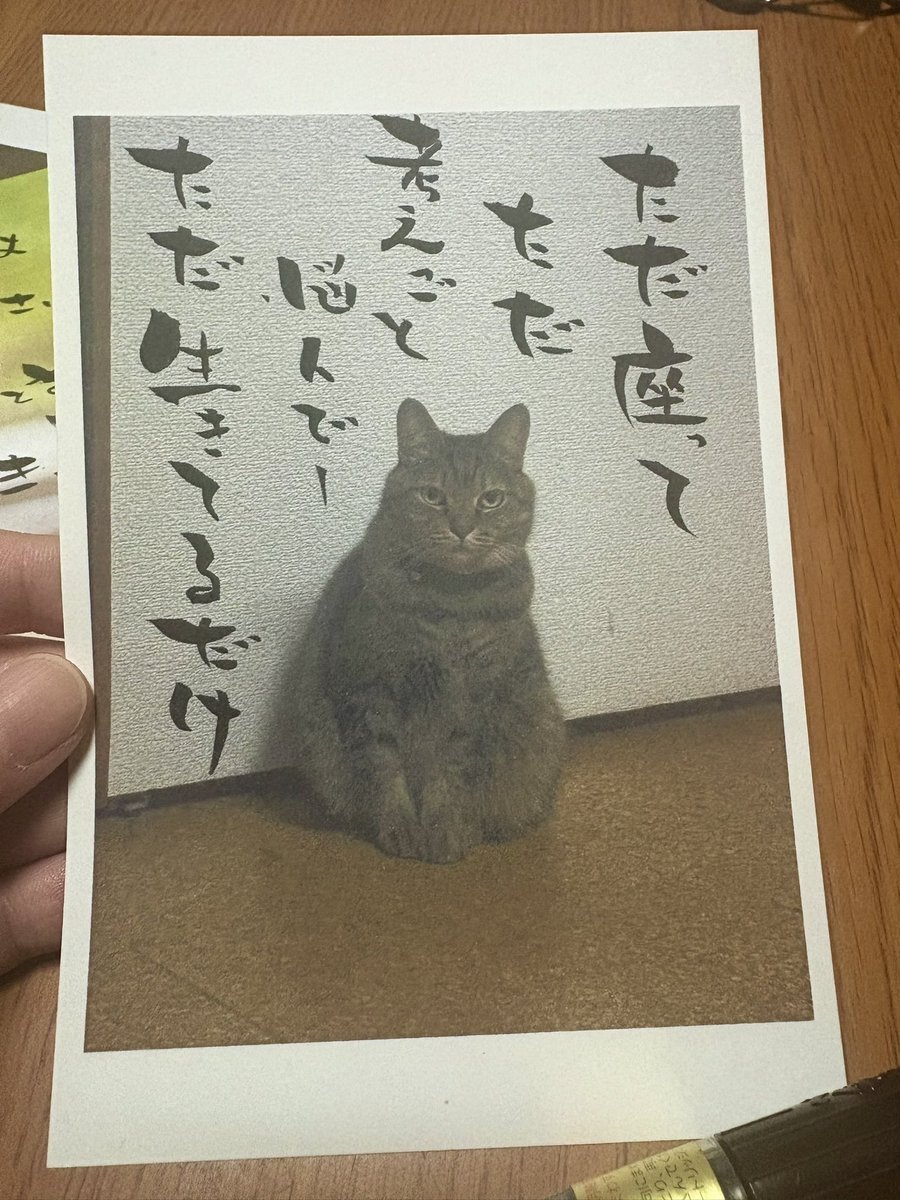 ただ座って
ただ
考えごと
悩んでー
ただ生きてるだけ